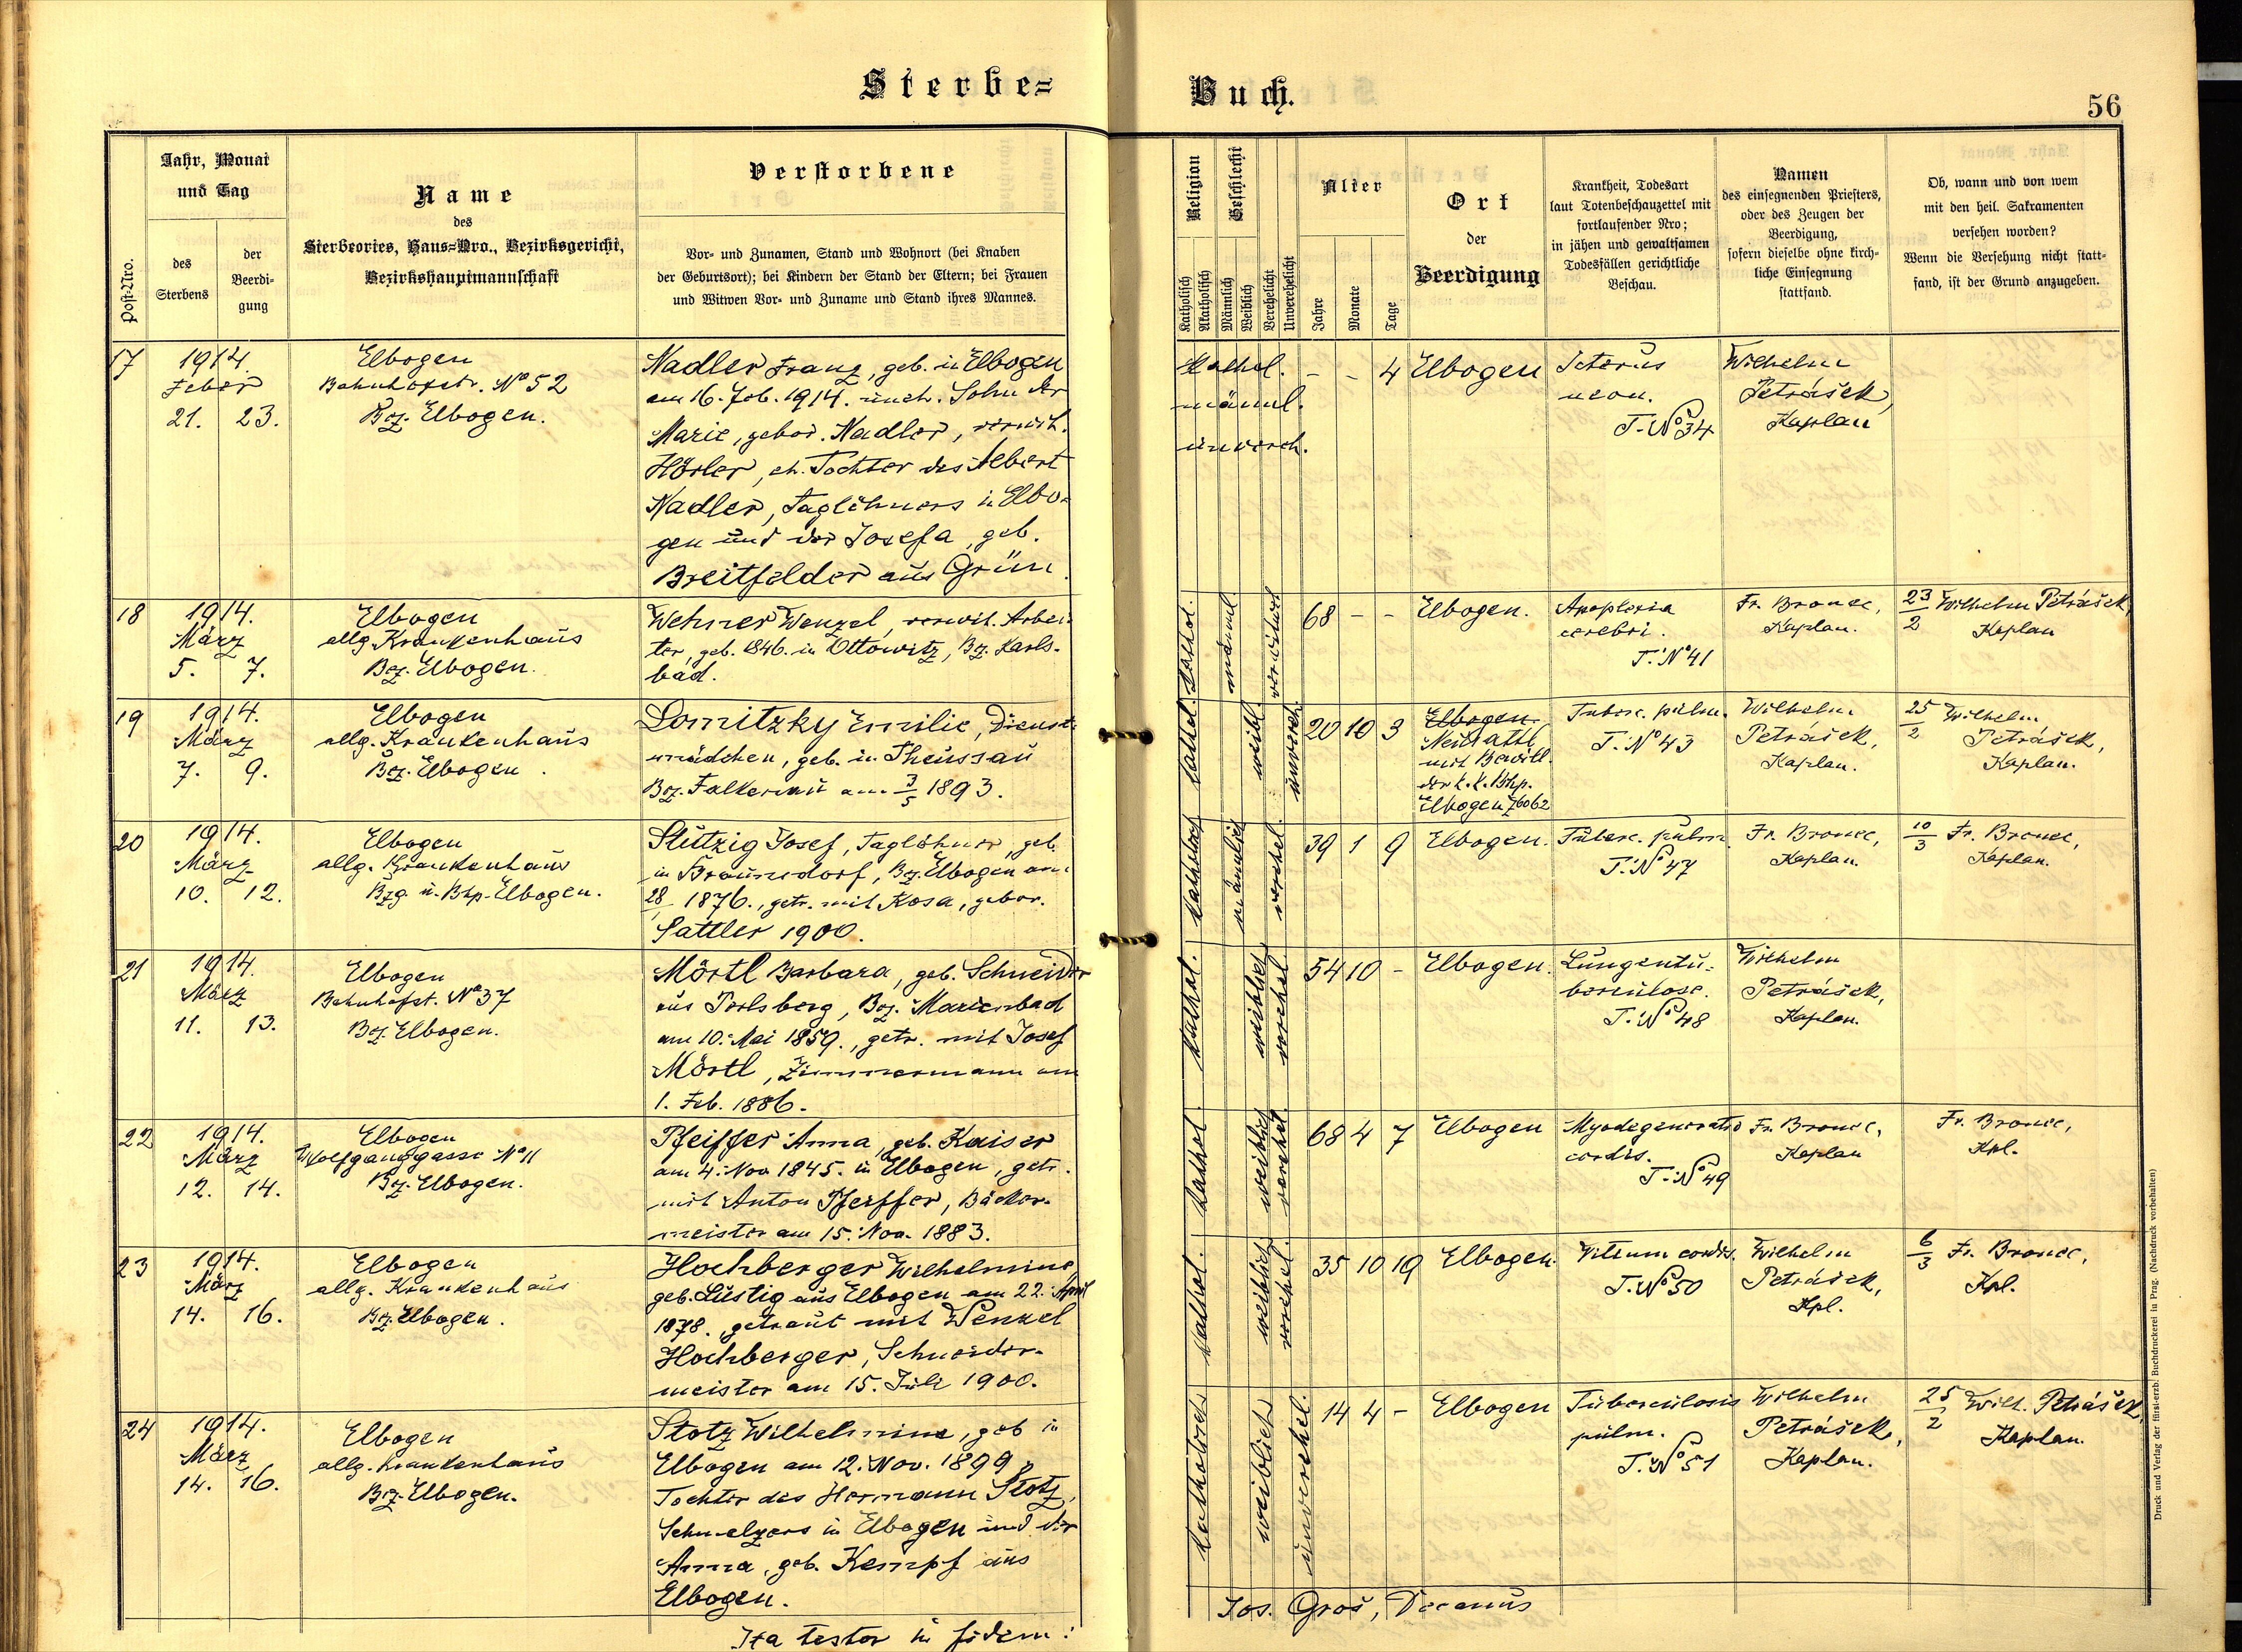 Sterbe=
Buch.
56
Post-Nro.
Jahr, Monat
und Tag
des
Sterbens
der
Beerdi-
gung
Name
des
Sterbeortes, Haus=Nro., Bezirksgericht,
Bezirkshauptmannschaft
Verstorbene
Vor- und Zunamen, Stand und Wohnort (bei Knaben
der Geburtsort); bei Kindern der Stand der Eltern; bei Frauen
und Witwen Vor- und Zuname und Stand ihres Mannes.
Religion
Katholisch
Akatholisch
Geschlecht
Männlich
Weiblich
Verehelicht
Unverehelicht
Alter
Jahre
Monate
Tage
Ort
der
Beerdigung
Krankheit, Todesart
laut Totenbeschauzettel mit
fortlaufender Nro;
in jähen und gewaltsamen
Todesfällen gerichtliche
Beschau.
Namen
des einsegnenden Priesters,
oder des Zeugen der
Beerdigung,
sofern dieselbe ohne kirch-
liche Einsegnung
stattfand.
Ob, wann und von wem
mit den heil. Sakramenten
versehen worden?
Wenn die Versehung nicht statt-
fand, ist der Grund anzugeben.
17
1914.
Feber
21. 23.
Elbogen
Bahnhofstr. No 52
Bez. Elbogen.
Nadler Franz, geb. in Elbogen
am 16. Feb. 1914. uneh. Sohn der
Marie, gebor. Nadler, verwit.
Hörler, eh. Tochter des Albert
Nadler, Taglöhners in Elbo-
gen und der Josefa, geb.
Breitfelder aus Grün.
Kathol.
männl.
unvereh.
- - 4
Elbogen
Icterus
neon.
T. No 34
Wilhelm
Petrášek,
Kaplan
18
1914.
März
5. 7.
Elbogen
allg. Krankenhaus
Bez. Elbogen.
Wehner Wenzel, verwit. Arbei-
ter, geb. 1846. in Ottowitz, Bz. Karls-
bad.
Kathol.
männl.
verwitwet
68 - -
Elbogen.
Apoplexia
cerebri.
T. No 41
Fr. Bronec,
Kaplan.
23/2 Wilhelm Petrášek,
Kaplan
19
1914.
März
7. 9.
Elbogen
allg. Krankenhaus
Bez. Elbogen.
Lomitzky Emilie, Dienst-
mädchen, geb. in Theussau
Bez. Falkenau am 3/5 1893.
kathol.
weibl.
unvereh.
20 10 3
Elbogen.
Neusattl
mit Bewill.
der k. k. Bhp.
Elbogen Z 6062
Tuberc. pulm.
T. No 43
Wilhelm
Petrášek,
Kaplan.
25/2 Wilhelm
Petrášek,
Kaplan.
20
1914.
März
10. 12.
Elbogen
allg. Krankenhaus
Bzg. u. Bhp. Elbogen.
Stützig Josef, Taglöhner, geb.
in Braunsdorf, Bz. Elbogen am
28/1 1876., getr. mit Rosa, gebor.
Sattler 1900.
katholisch
männlich
verehel.
39 1 9
Elbogen.
Tuberc. pulm.
T. No 47
Fr. Bronec,
Kaplan.
10/3 Fr. Bronec,
Kaplan.
21
1914.
März
11. 13.
Elbogen
Bahnhofst. No 37
Bz. Elbogen.
Mörtl Barbara, geb. Schneider
aus Perlsberg, Bez. Marienbad
am 10. Mai 1859., getr. mit Josef
Mörtl, Zimmermann am
1. Feb. 1886.
kathol.
weiblich
verehel.
54 10 -
Elbogen.
Lungentu-
berculose.
T. No 48
Wilhelm
Petrášek,
Kaplan.
22
1914.
März
12. 14.
Elbogen
Wolfganggasse No 11
Bz. Elbogen.
Pfeiffer Anna, geb. Kaiser
am 4. Nov. 1845. in Elbogen, getr.
mit Anton Pfeiffer, Bäcker-
meister am 15. Nov. 1883.
kathol.
weiblich
verehel.
68 4 7
Elbogen
Myodegeneratio
cordis.
T. No 49
Fr. Bronec,
Kaplan
Fr. Bronec,
Kpl.
23
1914.
März
14. 16.
Elbogen
allg. Krankenhaus
Bz. Elbogen.
Hochberger Wilhelmine
geb. Lustig aus Elbogen am 22. April
1878. getraut mit Wenzel
Hochberger, Schneider-
meister am 15. Juli 1900.
kathol.
weiblich
verehel.
35 10 19
Elbogen.
Vitium cordis.
T. No 50
Wilhelm
Petrášek,
Kpl.
6/3 Fr. Bronec,
Kpl.
24
1914.
März
14. 16.
Elbogen
allg. Krankenhaus
Bez. Elbogen.
Stotz Wilhelmine, geb. in
Elbogen am 12. Nov. 1899,
Tochter des Hermann Stotz,
Schmelzers in Elbogen und der
Anna, geb. Kempf aus
Elbogen.
katholisch
weiblich
unverehel.
14 4 -
Elbogen
Tuberculosis
pulm.
T. No 51
Wilhelm
Petrášek,
Kaplan.
25/2 Wilh. Petrášek
Kaplan.
Ita testor in fidem:
Jos. Groß, Decanus
Druck und Verlag der fürst-erzb. Buchdruckerei in Prag. (Nachdruck vorbehalten)